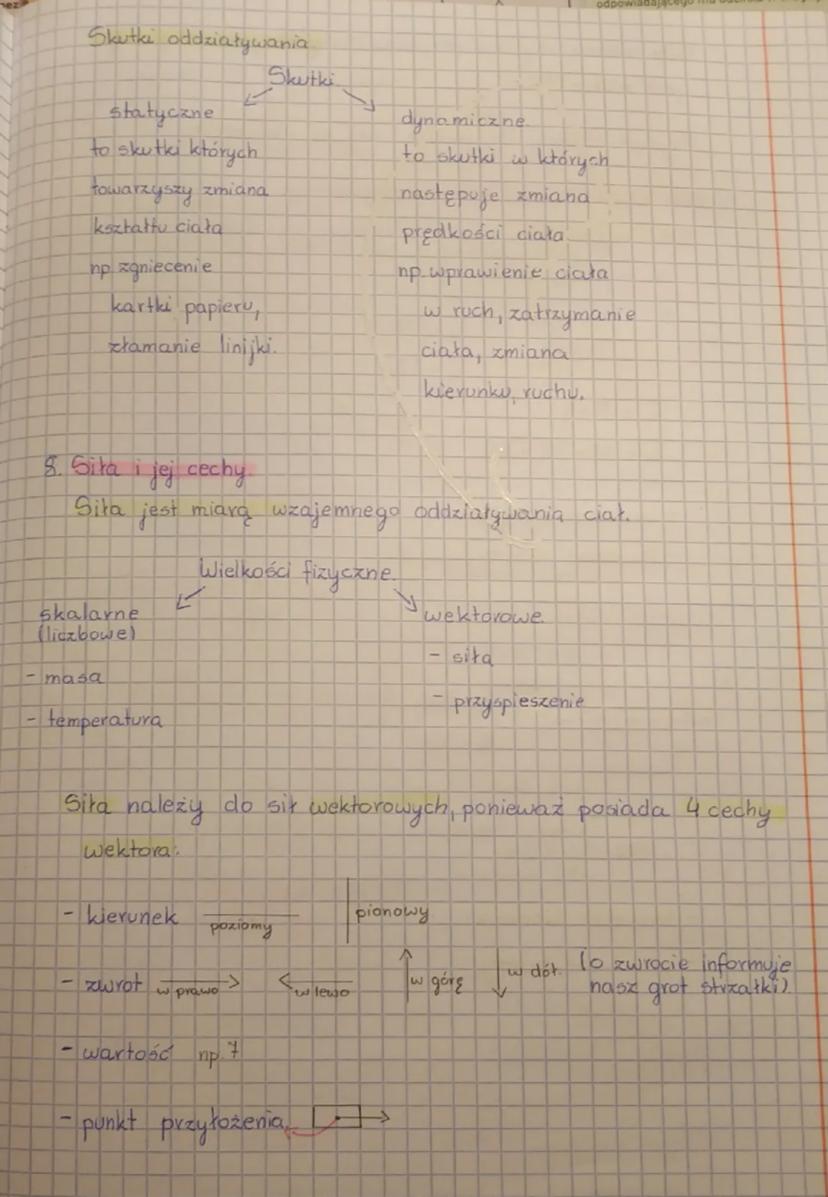 odpowiadającego mu
Skutki oddziaływania
Skutki
statyczne
to skutki których
towarzyszy zmiana
kształtu ciała
np. zgniecenie
kartki papieru,
złamanie linijki.
dynamiczne
to skutki w których
następuje zmiana
prędkości ciała
np. wprawienie ciała
w ruch, zatrzymanie
ciała, zmiana
kierunku ruchu.
8. Siła i jej cechy
Siła jest miarą wzajemnego oddziaływania ciał.
Wielkości fizyczne
skalarne
(liczbowe)
- masa
- temperatura
wektorowe
- siła
- przyspieszenie
Siła należy do sił wektorowych, ponieważ posiada 4 cechy
wektora:
- kierunek poziomy pionowy
- zwrot w prawo w lewo w górę w dół (o zwrocie informuje
nasz grot strzałki)
- wartość np. 7
- punkt przyłożenia